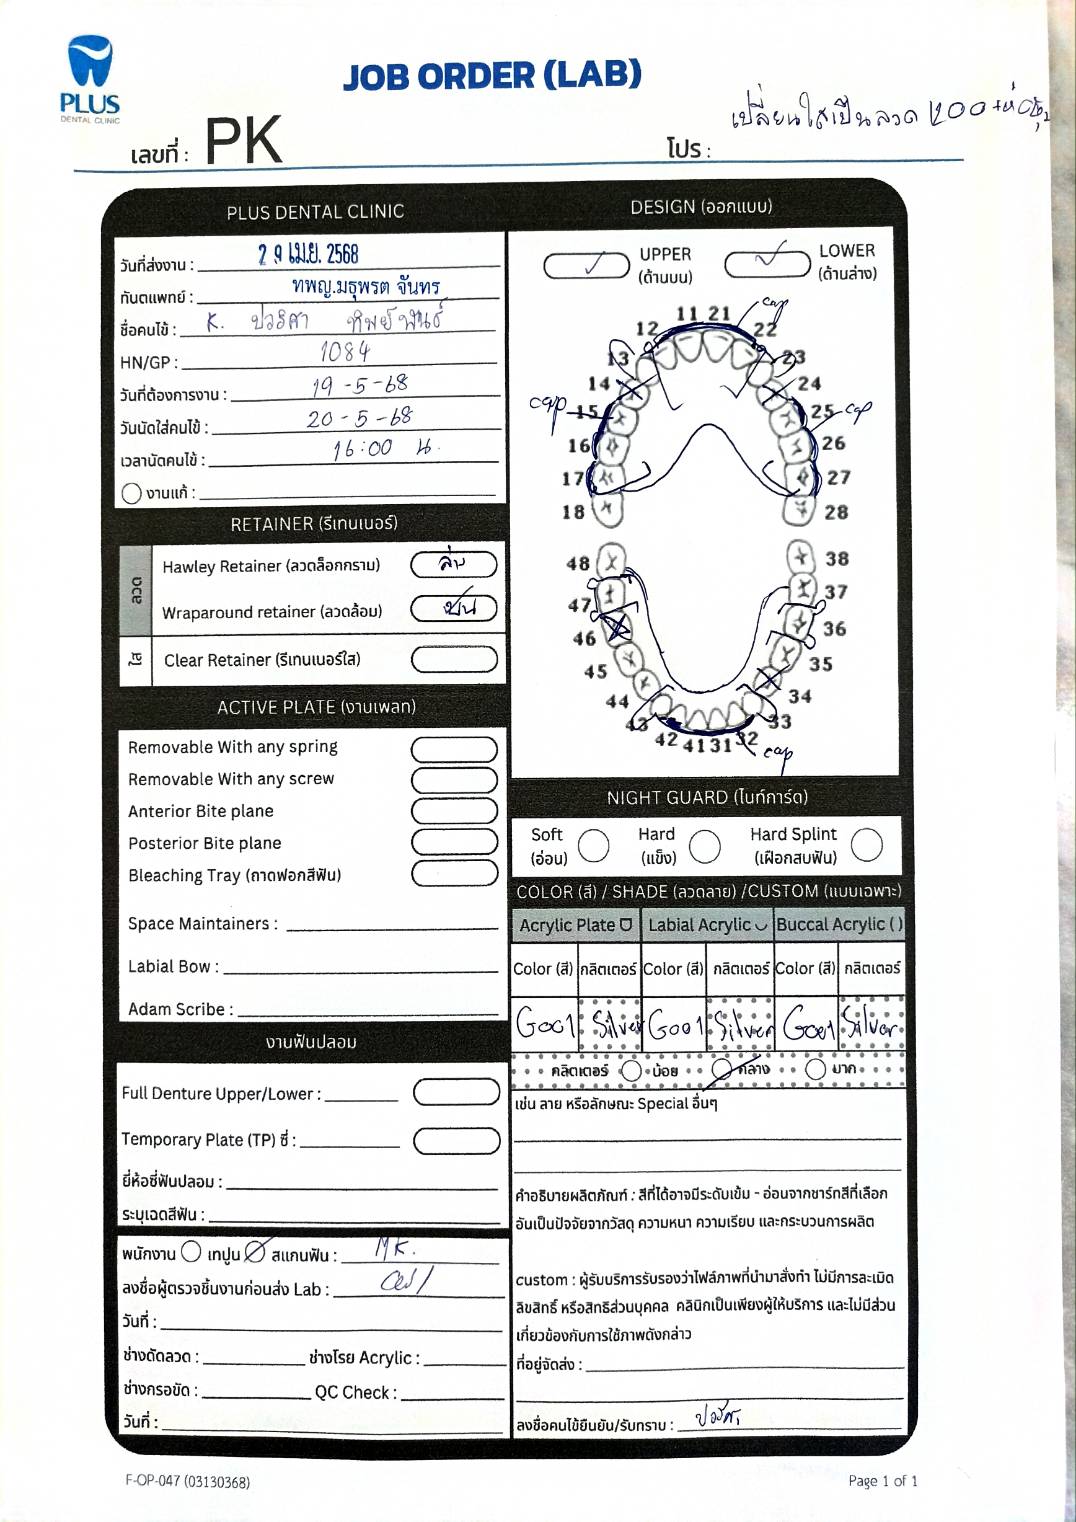 PLUS
DENTAL CLINIC
JOB ORDER (LAB)
เปลี่ยนใสเป็นลวด 1200
เลขที่ : PK
โปร :
PLUS DENTAL CLINIC
วันที่ส่งงาน : 29 เม.ย. 2568
ทันตแพทย์ : ทพญ.มธุพรต จันทร
ชื่อคนไข้ : K. ปวริศา ทิพย์พันธ์
HN/GP : 1084
วันที่ต้องการงาน : 19-5-68
วันนัดใส่คนไข้ : 20-5-68
เวลานัดคนไข้ : 16:00 น.
งานแก้ :
RETAINER (รีเทนเนอร์)
ลวด
Hawley Retainer (ลวดล็อกกราม) ล่าง
Wraparound retainer (ลวดล้อม) บน
ใส
Clear Retainer (รีเทนเนอร์ใส)
ACTIVE PLATE (งานเพลท)
Removable With any spring
Removable With any screw
Anterior Bite plane
Posterior Bite plane
Bleaching Tray (ถาดฟอกสีฟัน)
Space Maintainers :
Labial Bow :
Adam Scribe :
งานฟันปลอม
Full Denture Upper/Lower :
Temporary Plate (TP) ซี่ :
ยี่ห้อซี่ฟันปลอม :
ระบุเฉดสีฟัน :
พนักงาน เทปูน สแกนฟัน : MK.
ลงชื่อผู้ตรวจชิ้นงานก่อนส่ง Lab :
วันที่ :
ช่างดัดลวด : ช่างโรย Acrylic :
ช่างกรอขัด : QC Check :
วันที่ :
DESIGN (ออกแบบ)
UPPER
(ด้านบน)
LOWER
(ด้านล่าง)
cap
11 21
12 22
13 23
14 24
cap 15 25 cap
16 26
17 27
18 28
48 38
47 37
46 36
45 35
44 34
43 33
42 41 31 32
cap
NIGHT GUARD (ไนท์การ์ด)
Soft
(อ่อน)
Hard
(แข็ง)
Hard Splint
(เฝือกสบฟัน)
COLOR (สี) / SHADE (ลวดลาย) /CUSTOM (แบบเฉพาะ)
Acrylic Plate Labial Acrylic Buccal Acrylic ( )
Color (สี) กลิตเตอร์ Color (สี) กลิตเตอร์ Color (สี) กลิตเตอร์
G001 Silver G001 Silver G001 Silver
กลิตเตอร์ น้อย กลาง มาก
เช่น ลาย หรือลักษณะ Special อื่นๆ
คำอธิบายผลิตภัณฑ์ : สีที่ได้อาจมีระดับเข้ม - อ่อนจากชาร์ทสีที่เลือก
อันเป็นปัจจัยจากวัสดุ ความหนา ความเรียบ และกระบวนการผลิต
custom : ผู้รับบริการรับรองว่าไฟล์ภาพที่นำมาสั่งทำ ไม่มีการละเมิด
ลิขสิทธิ์ หรือสิทธิส่วนบุคคล คลินิกเป็นเพียงผู้ให้บริการ และไม่มีส่วน
เกี่ยวข้องกับการใช้ภาพดังกล่าว
ที่อยู่จัดส่ง :
ลงชื่อคนไข้ยืนยัน/รับทราบ : ปวริศา
F-OP-047 (03130368)
Page 1 of 1